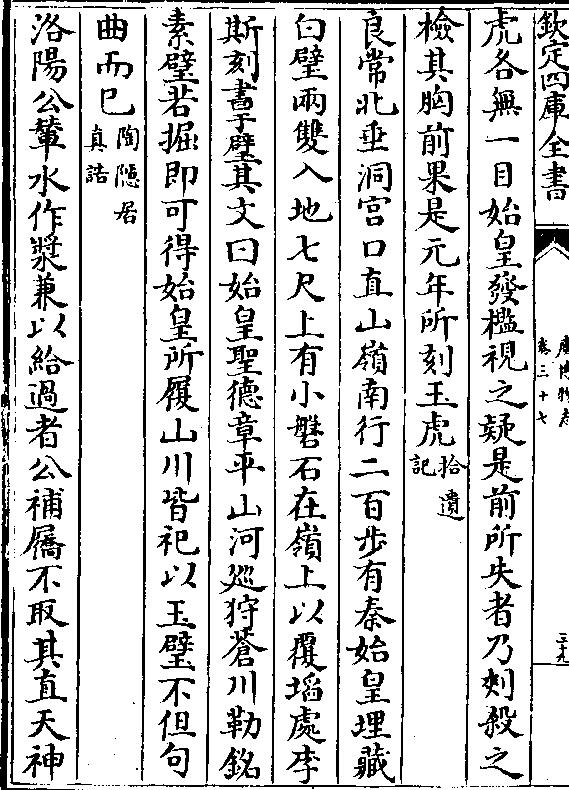 欽定四庫全書
廣博物志
卷三十七
三十九
虎各無一目始皇發檻視之疑是前所失者乃刺殺之
檢其胸前果是元年所刻玉虎拾遺記
良常北垂洞宫口直山嶺南行二百步有秦始皇埋藏
白璧兩雙入地七尺上有小磐石在嶺上以覆埳處李
斯刻書于璧其文曰始皇聖德章平山河巡狩蒼川勒銘
素璧若掘即可得始皇所履山川皆祀以玉璧不但句
曲而已陶隠居真誥
洛陽公輦水作漿兼以給過者公補屩不取其直天神